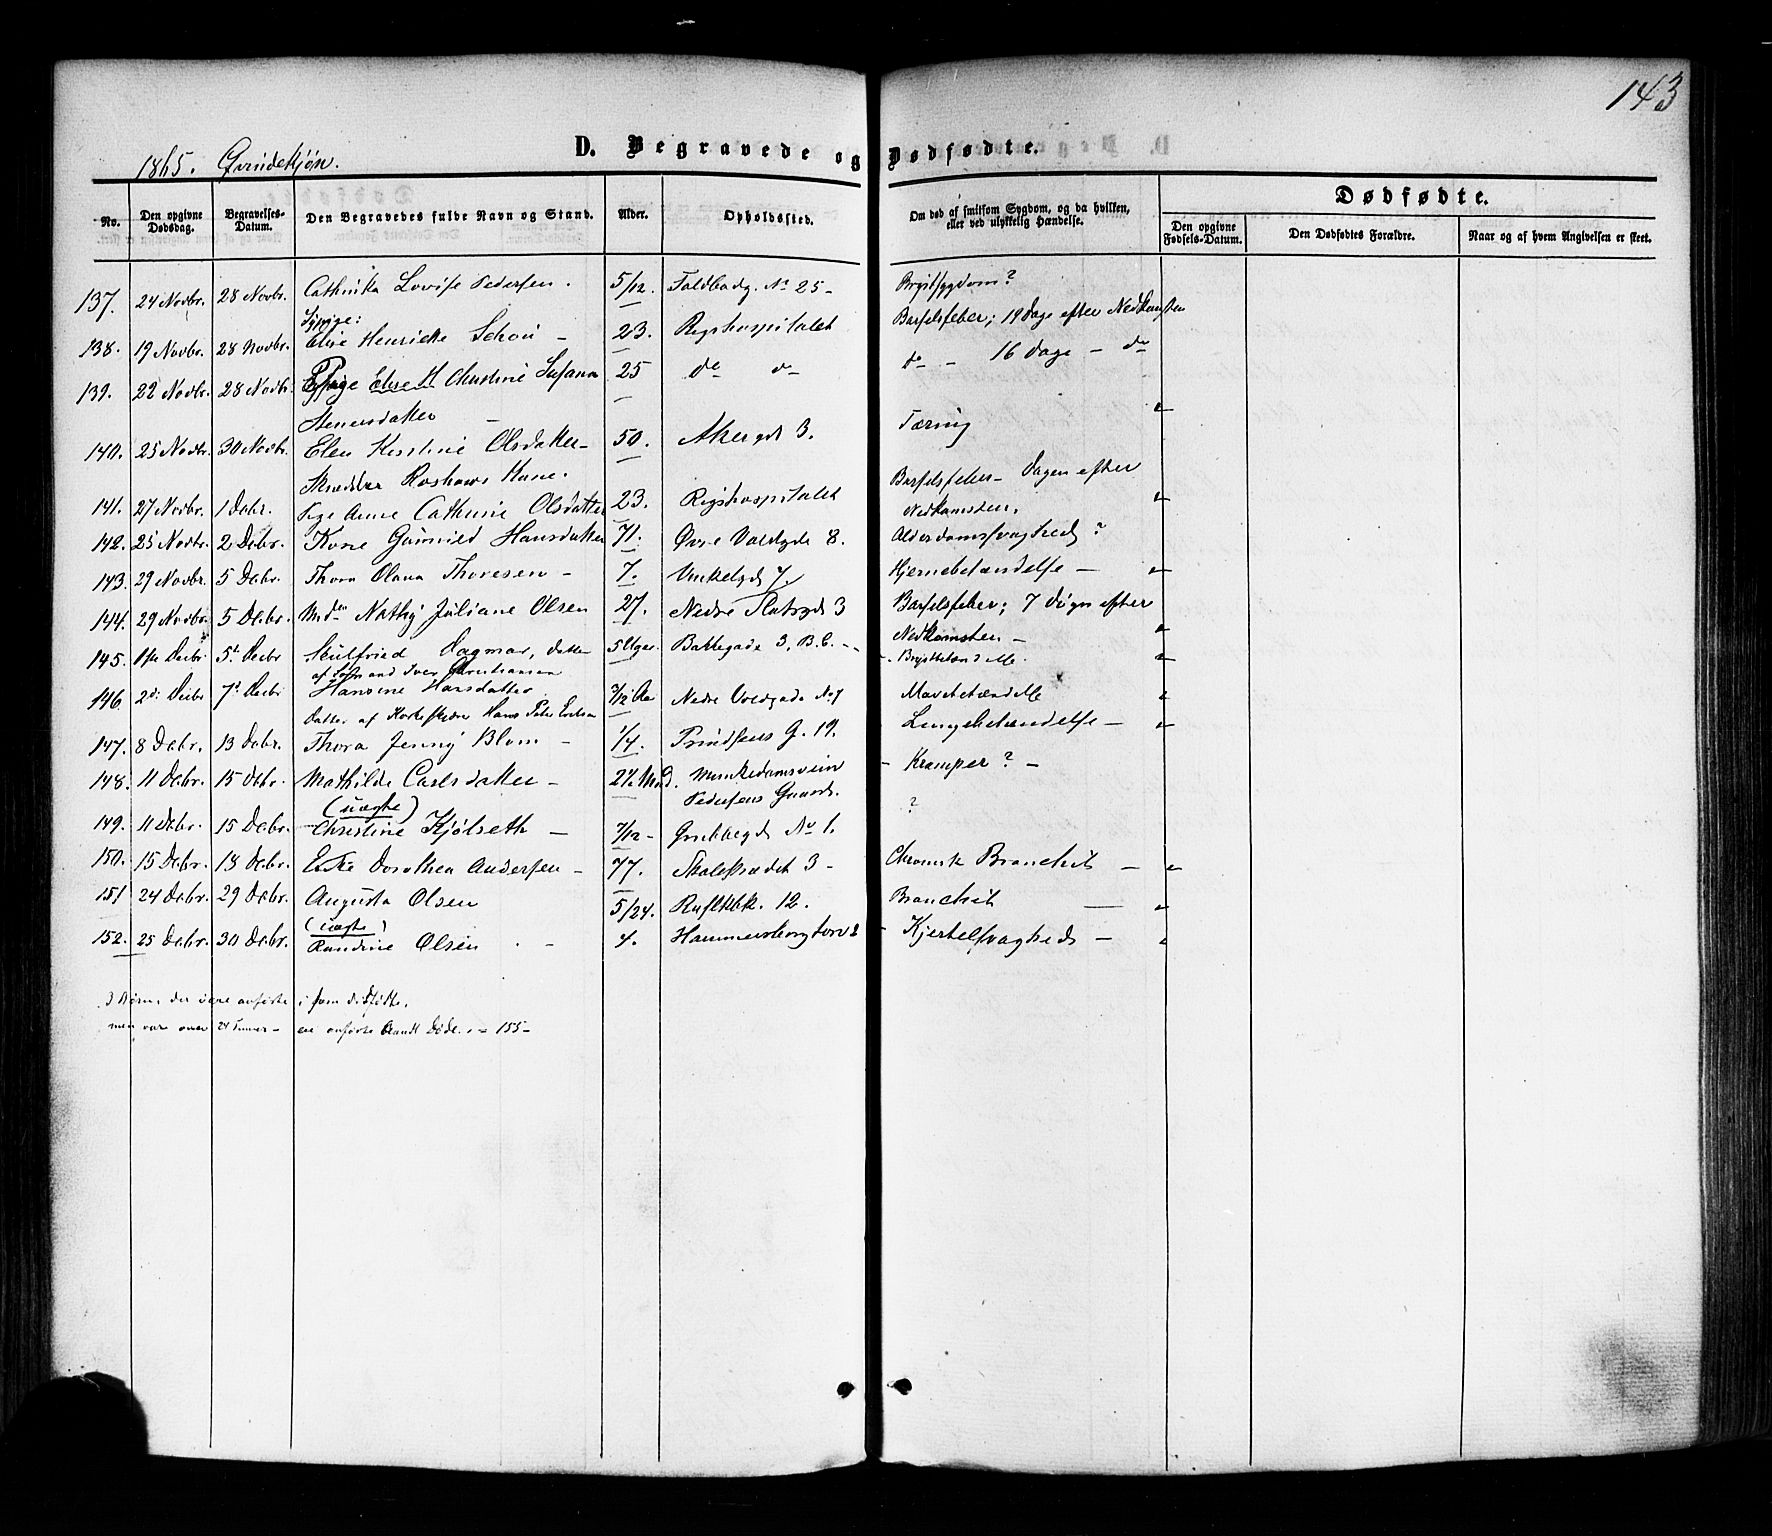 143
D. Begravede og Dødfødte.
1865. Qvindekjøn.
No.
Den opgivne Dødsdag.
Begravelses-Datum.
Den Begravedes fulde Navn og Stand.
Alder.
Opholdssted.
Om død af smitsom Sygdom, og da hvilken, eller ved ulykkelig Hændelse.
Dødfødte.
Den opgivne Fødsels-Datum.
Den Dødfødtes Forældre.
Naar og af hvem Angivelsen er skeet.
137. 24 Novbr. 28 Novbr. Cathrika Lovise Pedersen. 5/12. No 25- Brystsygdom?
138. 19 Novbr. 28 Novbr. Henriette 23. Rigshospitalet Barselsfeber; 19 Dage efter Nedkomsten
139. 22 Novbr. 28 Novbr. Pige Else M Christine Susanna 25 do do do - 16 Dage - do
Stenersdatter
140. 25 Novbr. 30 Novbr. Elen Kirstine Olsdatter- 50. Akergd 3. Tæring
Skrædder Kone.
141. 27 Novbr. 1 Debr. Pige Anne Cathrine Olsdatter 23. Rigshospitalet Barselsfeber- Dagen efter
Nedkomsten.
142. 25 Novbr. 2 Debr. Kone Gunnild Hansdatter 71. Øvre Voldgde 8. Alderdomssvaghed?
143. 29 Novbr. 5 Debr. Thora Olava Thoresen - 7. Vinkelgd 7. Hjernebetændelse -
144. 29 Novbr. 5 Debr. Juliane Olsen 27. Nedre Slotsgd 3 Barselsfeber; 7 Døgn efter
Nedkomsten -
145. 5t Decbr Dagmar, datter 5 Uger Bakkegade 3, B.C. Brystbetændelse.
af Iver Christiansen
146 2d Decbr 7d Decbr Hansine Hansdatter 7/12 Aar Nedre Voldgade No 7 Mavebetændelse
Datter af Hans Peter
147. 8 Debr. 13 Debr. Thora Jenny Blom - 1/4. Prindsens G. 19. Lungebetændelse -
148. 11 Debr. 15 Debr. Mathilde Carlsdatter - Munkedamsveien Kramper? -
(uægte) Pedersens Gaard.
149. 11 Debr. 15 Debr. Christine Kjølseth - 7/12- Grubbegd No 1. ?
150. 15 Debr. 18 Debr. Enke Dorothea Andersen - 77. Skolestrædet 3- Chronisk Bronchit -
151 24 Debr. 29 Debr. Augusta Olsen 5/24. 12. Bronchit
(uægte)
152. 25 Debr. 30 Debr. Randine Olsen - 4. Hammersborg torv 2 Kjertelsvaghed -
3 Børn, der vare anførte i som dødfødte,
men var over 24 Timer - ere anførte blandt Døde. = 155-